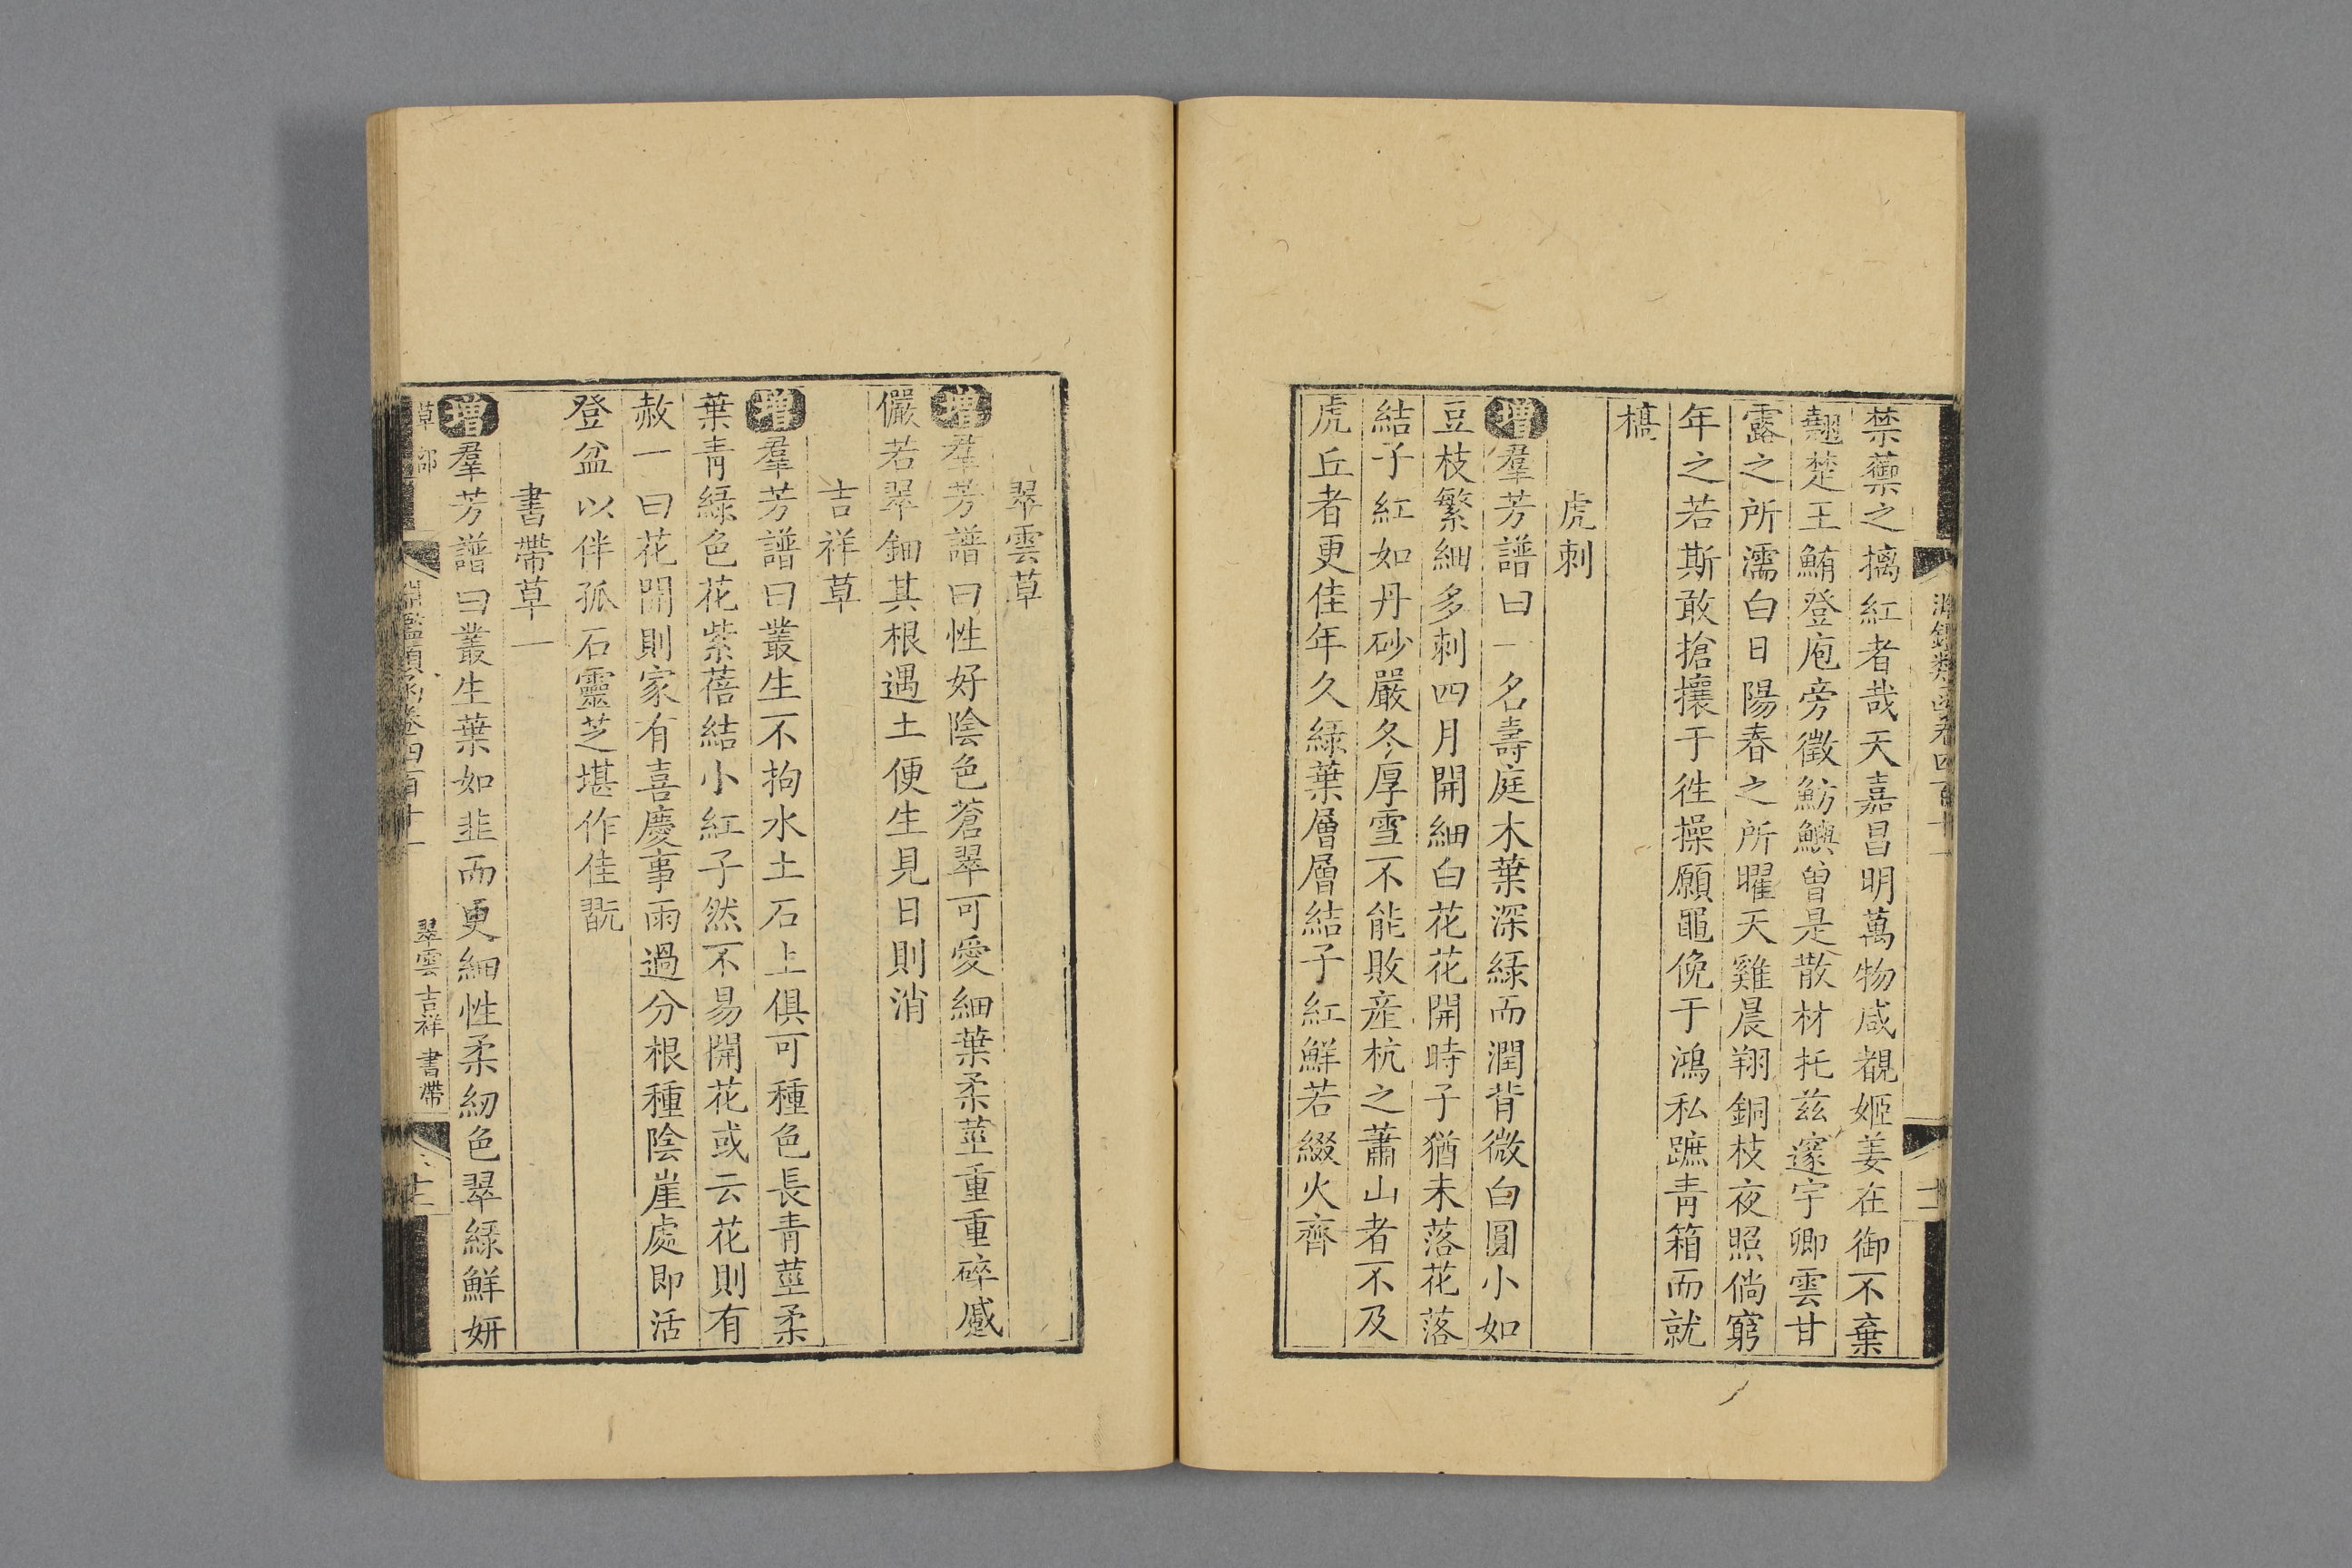 禁蘌之摛紅者哉天嘉昌明萬物咸覩姬姜在御不棄
翹楚王鮪登庖旁徵魴鱮曾是散材托茲邃宇卿雲甘
露之所濡白日陽春之所曜天雞晨翔銅枝夜照倘窮
年之若斯敢搶攘于徃操願黽俛于鴻私蹠青箱而就
槁
虎刺
增羣芳譜曰一名壽庭木葉深綠而潤背微白圓小如
豆枝繁細多刺四月開細白花花開時子猶未落花落
結子紅如丹砂嚴冬厚雪不能敗産杭之蕭山者不及
虎丘者更佳年久綠葉層層結子紅鮮若綴火齊
翠雲草
增羣芳譜曰性好陰色蒼翠可愛細葉柔莖重重碎蹙
儼若翠鈿其根遇土便生見日則消
吉祥草
增羣芳譜曰叢生不拘水土石上俱可種色長青莖柔
葉青綠色花紫蓓結小紅子然不易開花或云花則有
赦一曰花開則家有喜慶事雨過分根種陰崖處即活
登盆以伴孤石靈芝堪作佳翫
書帶草一
增羣芳譜曰叢生葉如韭而更細性柔紉色翠綠鮮妍
草部
淵鑑類函卷四百十一
翠雲 吉祥 書帶